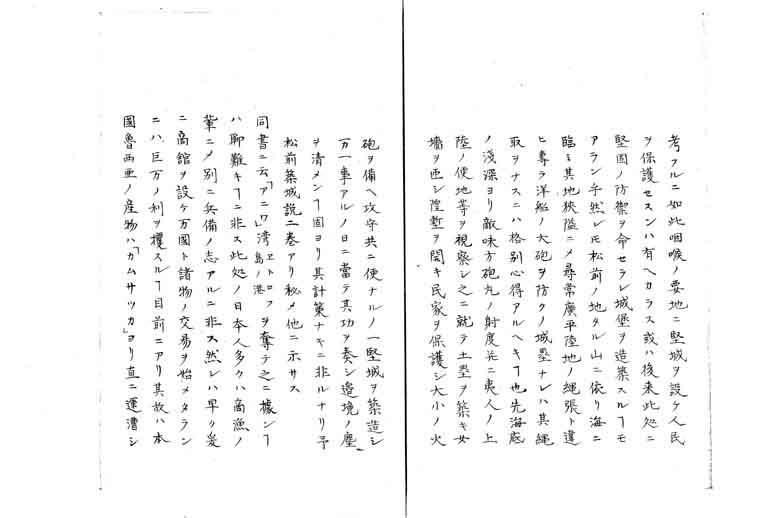 考フルニ如此咽喉ノ要地ニ堅城ヲ設ケ人民
ヲ保護セスンハ有ヘカラス或ハ後来此処ニ
堅固ノ防禦ヲ命セラレ城堡ヲ造築スルヿモ
アラン乎然レ𪜈松前ノ地タル山ニ依リ海ニ
臨ミ其地狭隘ニメ尋常廣平陸地ノ縄張ト違
ヒ専ラ洋舩ノ大砲ヲ防クノ城塁ナレハ其縄
取ヲナスニハ格別心得アルヘキヿ也先海底
ノ淺深ヨリ敵味方砲丸ノ射度并ニ夷人ノ上
陸ノ便地等ヲ視察シ之ニ就テ土塁ヲ築キ女
墻ヲ匝シ隍塹ヲ開キ民家ヲ保護シ大小ノ火
砲ヲ備ヘ攻守共ニ便ナルノ一堅城ヲ築造シ
万一事アルノ日ニ當テ其功ヲ奏シ邉境ノ塵
ヲ清メンヿ固ヨリ其計策ナキニ非ルナリ予
松前築城説二巻アリ秘メ他ニ示サス
同書ニ云「アニワ」湾ヱトロフ島ノ港ヲ奪テ之ニ據ンヿ
ハ聊難キヿニ非ス此処ノ日本人多クハ商漁ノ
輩ニメ別ニ兵備ノ志アルニ非ス然レハ早ク爰
ニ商館ヲ設ケ万國ト諸物ノ交易ヲ始メタラン
ニハ巨万ノ利ヲ攫スルヿ目前ニアリ其故ハ本
國魯西亜ノ産物ハ「カムサツカ」ヨリ直ニ運漕シ